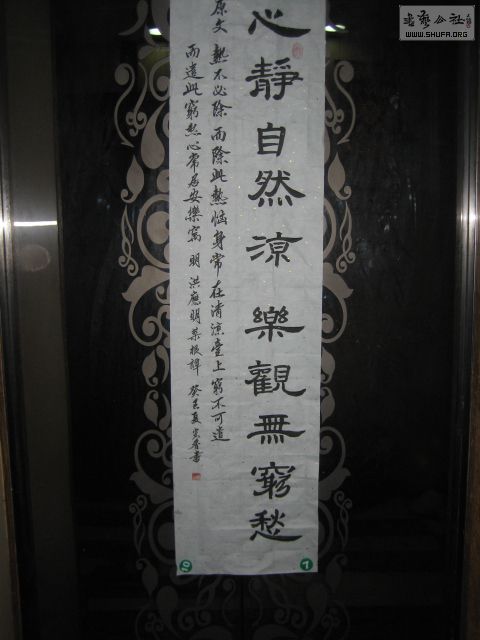 心靜自然涼樂觀無窮愁
原文 熱不必除而除此熱惱身常在清涼臺上窮不可遣
而遣此窮愁心常居安樂窩 明 洪應明菜根譚 癸巳夏
書藝公社
WWW.SHUFA.ORG
7